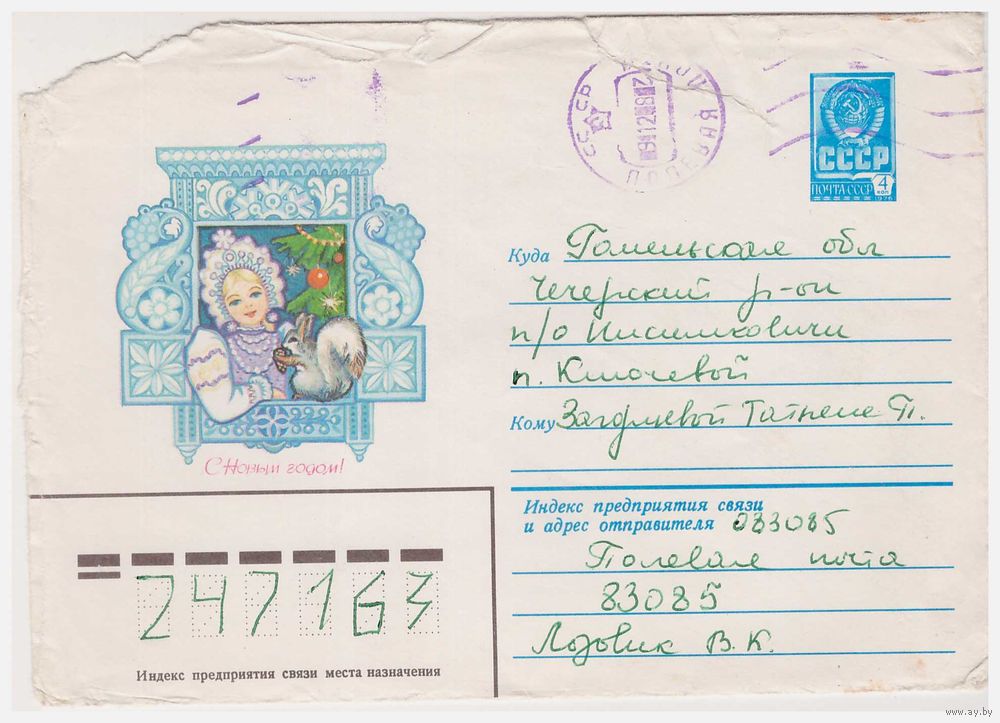 СССР
ПОЛЕВАЯ
СССР
ПОЧТА СССР
4
КОП
1976
Куда Гомельская обл
Чечерский р-он
п/о Нисимковичи
п. Ключевой
Кому Татьяне П.
С Новым годом!
Индекс предприятия связи
и адрес отправителя 083085
Полевая почта
83085
Лозовик В. К.
247163
Индекс предприятия связи места назначения
www.ay.by